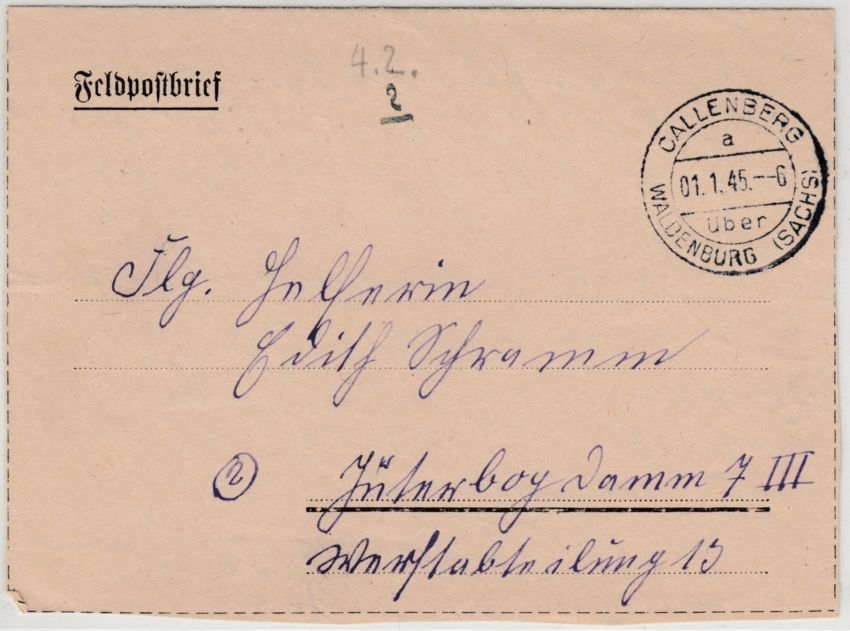 Feldpostbrief
4.2.
2
CALLENBERG
a
01.1.45.--6
über
WALDENBURG (SACHS)
Flg. Helferin
Edith Schramm
2 Jüterbog Damm 7 III
Werftabteilung 13